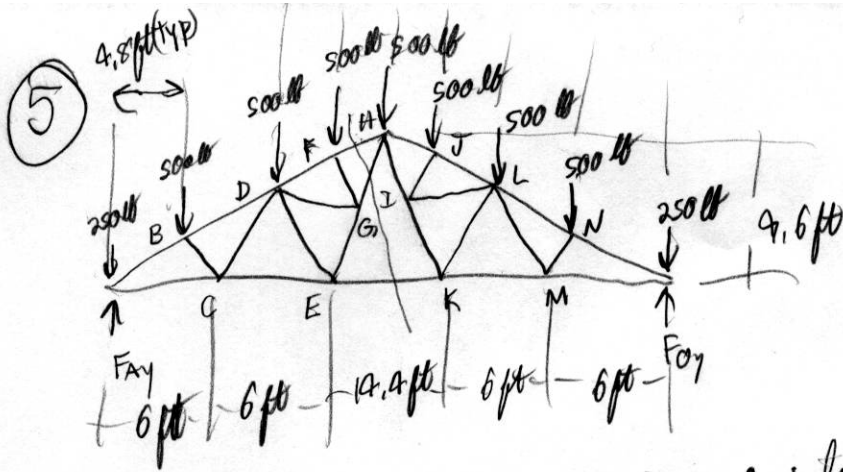 5
4,8ft(typ)
500lb
500lb
500lb
500lb
500lb
500lb
500lb
250lb
250lb
B
D
F
H
J
L
N
G
I
C
E
K
M
4,6ft
FAy
FOy
6ft
6ft
14,4ft
6ft
6ft